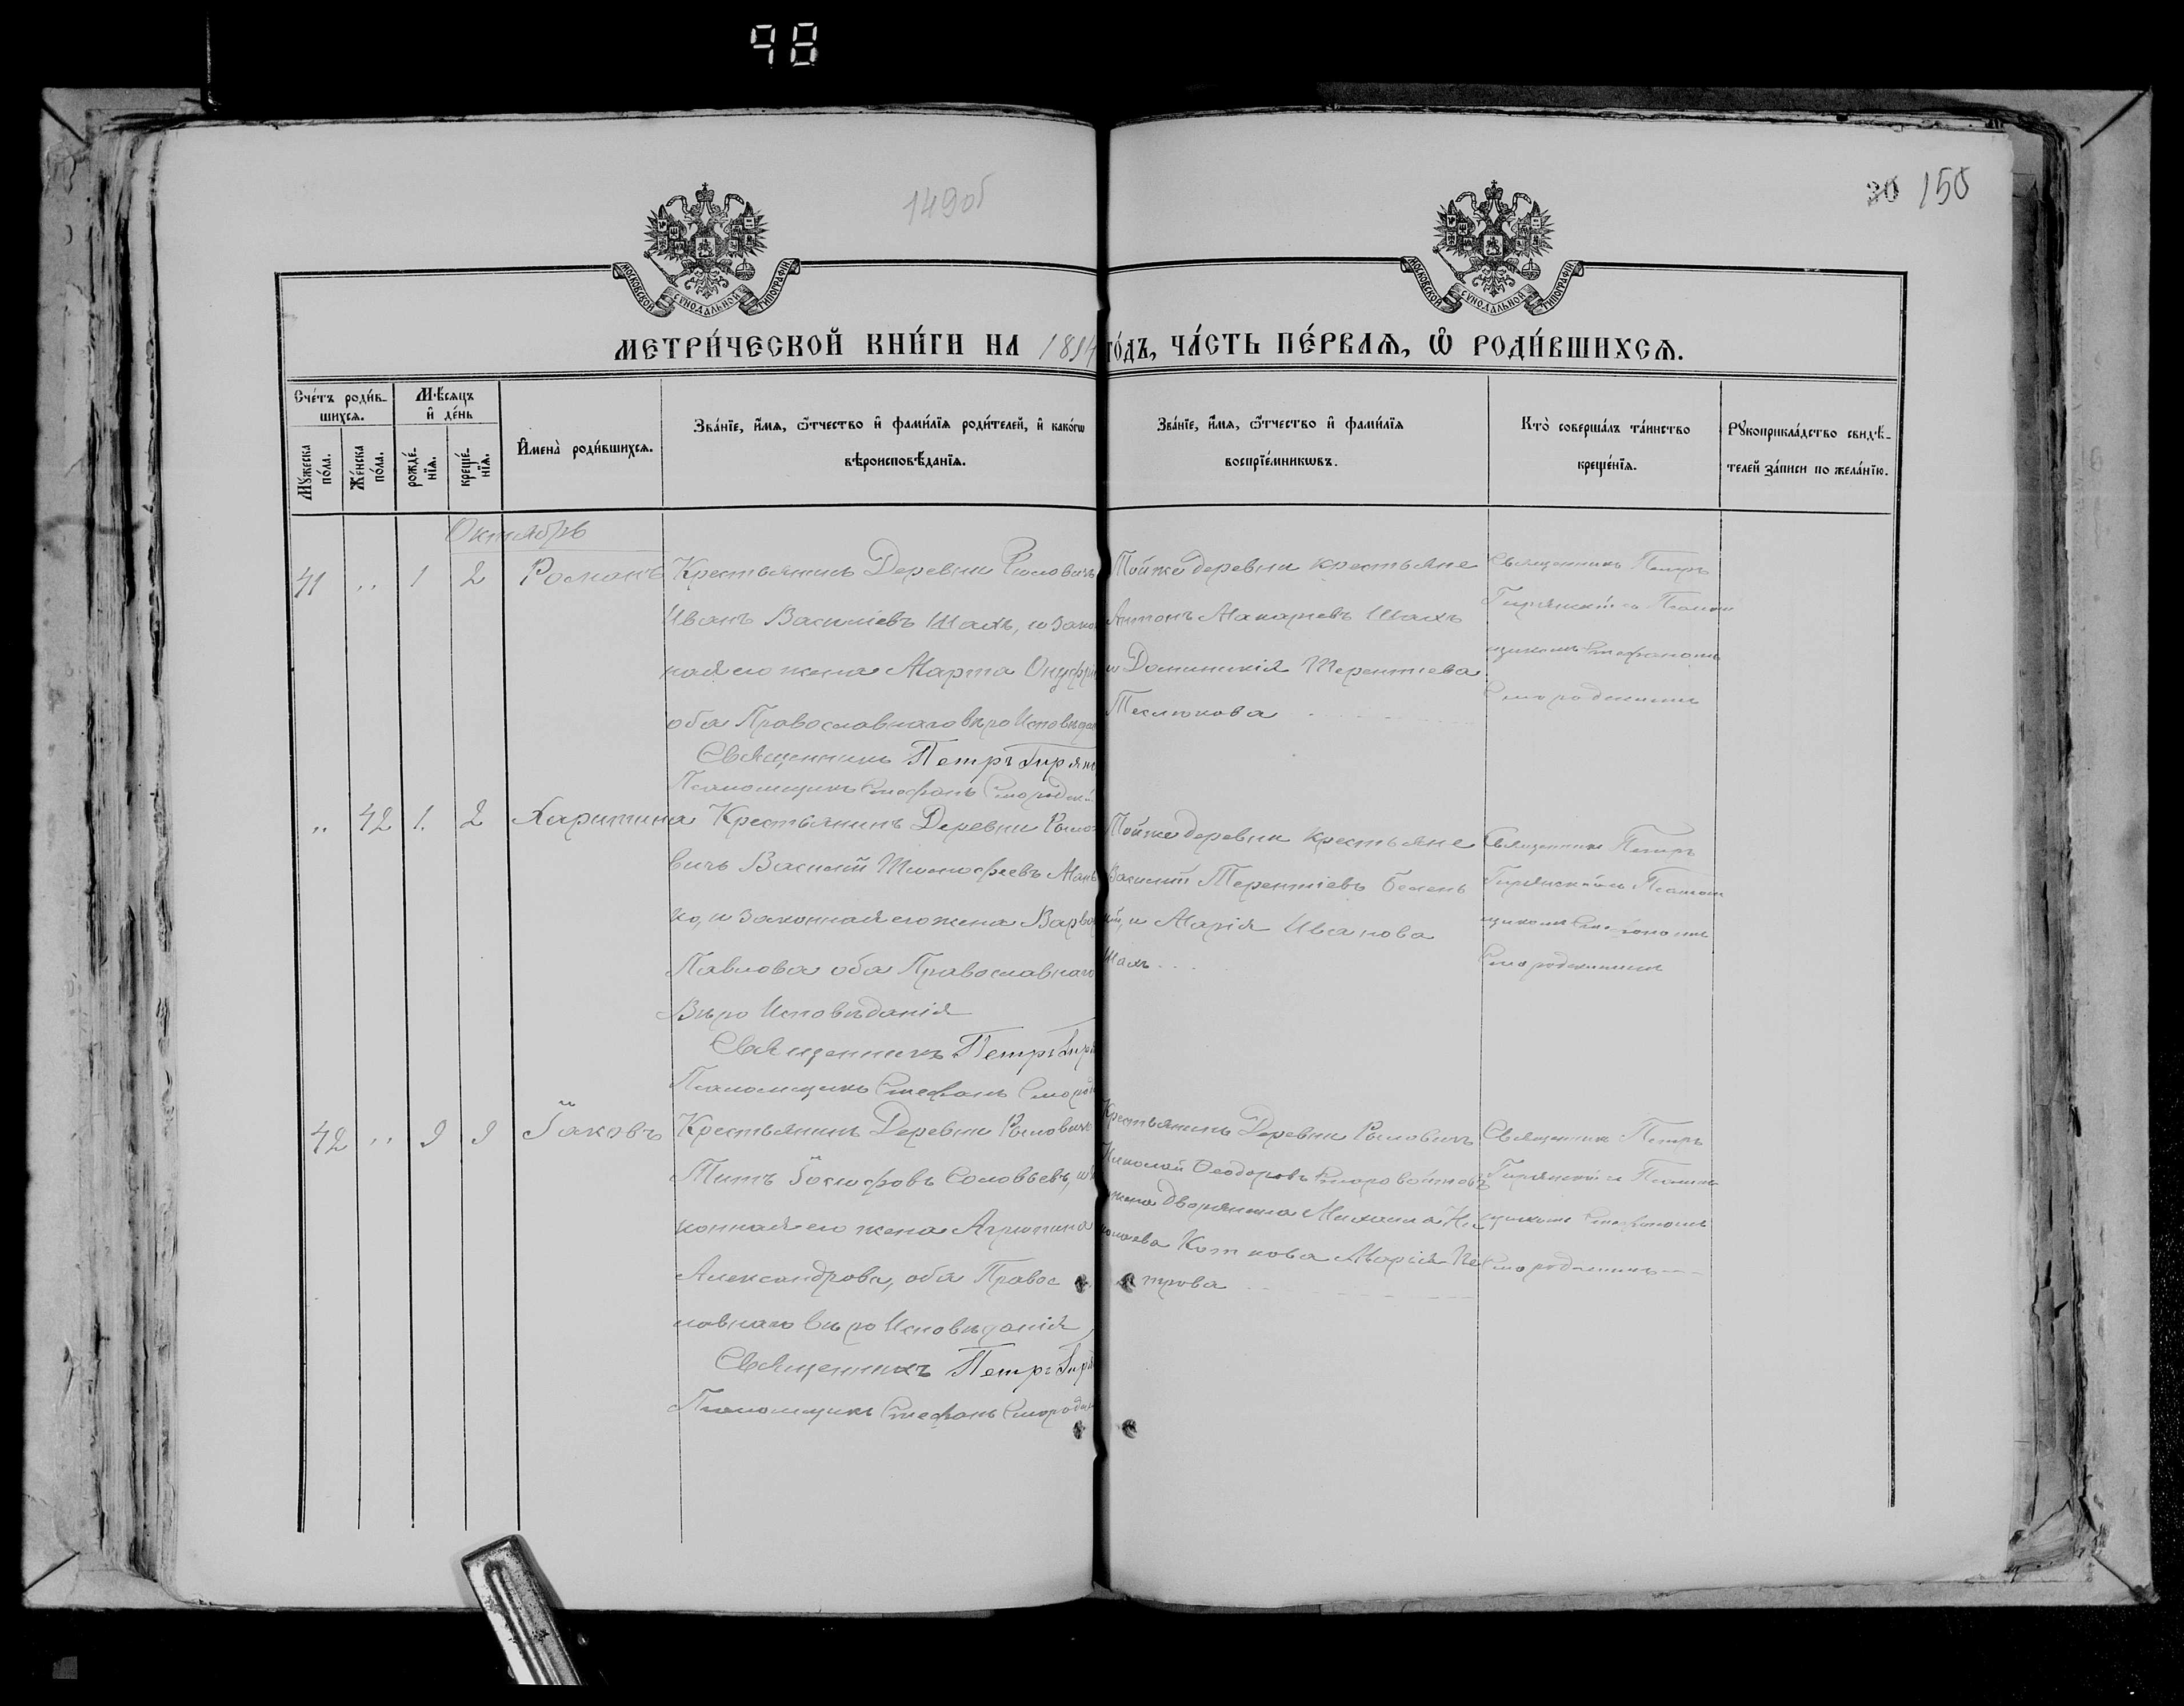 98
149об
30 150
МОСКОВСКОЙ СУНОДАЛЬНОЙ ТИПОГРАФІИ
МОСКОВСКОЙ СУНОДАЛЬНОЙ ТИПОГРАФІИ
МЕТРИ́ЧЕСКОЙ КНИ́ГИ НА 1894 ГО́ДЪ, ЧА́СТЬ ПЕ́РВАѦ, Ѡ РОДИ́ВШИХСѦ.
Сче́тъ роди́в-
шихсѧ.
Мѣ́сѧцъ
и де́нь
Му́жеска по́ла.
Же́нска по́ла.
рожде́-нїѧ.
креще́-нїѧ.
И҆мена̀ роди́вшихсѧ.
Зва́нїе, и҆́мѧ, ѻ҆́тчество и҆ фами́лїѧ роди́телей, и҆ како́гѡ
вѣроисповѣ́данїѧ.
Зва́нїе, и҆́мѧ, ѻ҆́тчество и҆ фами́лїѧ
воспрїе́мникѡвъ.
Кто̀ соверша́лъ та́инство
креще́нїѧ.
Рꙋкоприкла́дство свидѣ́-
телей за́писи по жела́нїю.
Октябрь
41 „ 1 2 Романъ
Крестьянинъ Деревни Рыловичъ
Иванъ Василіевъ Шахъ, и зако
ная его жена Марта Онуфрі
оба Православнаго вѣроИсповѣда
Священникъ Петръ Гирян
Псаломщикъ Стефанъ Смородск
Тойже деревни крестьяне
Антонъ Макаріевъ Шахъ
и Доминикія Терентіева
Теслюкова
Священникъ Петръ
Гирянскій съ Псалом
щикомъ Стефаномъ
„ 42 1. 2 Харитина
Крестьянинъ Деревни Рыло
вичъ Василій Тимофеевъ Мань
ко, и законная его жена Варва
Павлова оба Православнаго
Вѣро Исповѣданія
Священникъ Петръ Гиря
Псаломщикъ Стефанъ Смород
Тойже деревни крестьяне
Василій Терентіевъ
и Марія Иванова
Шахъ
Священникъ Петръ
Гирянскій съ Псалом
щикомъ Стефаномъ
42 „ 9 9 Іаковъ
Крестьянинъ Деревни Рыловичъ
Титъ Іосифовъ Соловьевъ, и за
конная его жена Агрипина
Александрова, оба Правос
лавнаго вѣроИсповѣданія,
Священникъ Петръ Гиря
Псаломщикъ Стефанъ Смородс
Крестьянинъ Деревни Рыловичъ
Николай Ѳеодоровъ
жена дворянина Михаила Ни
колаева Коткова Марія Пе
трова
Священникъ Петръ
Гирянскій съ Псалом
щикомъ Стефаномъ